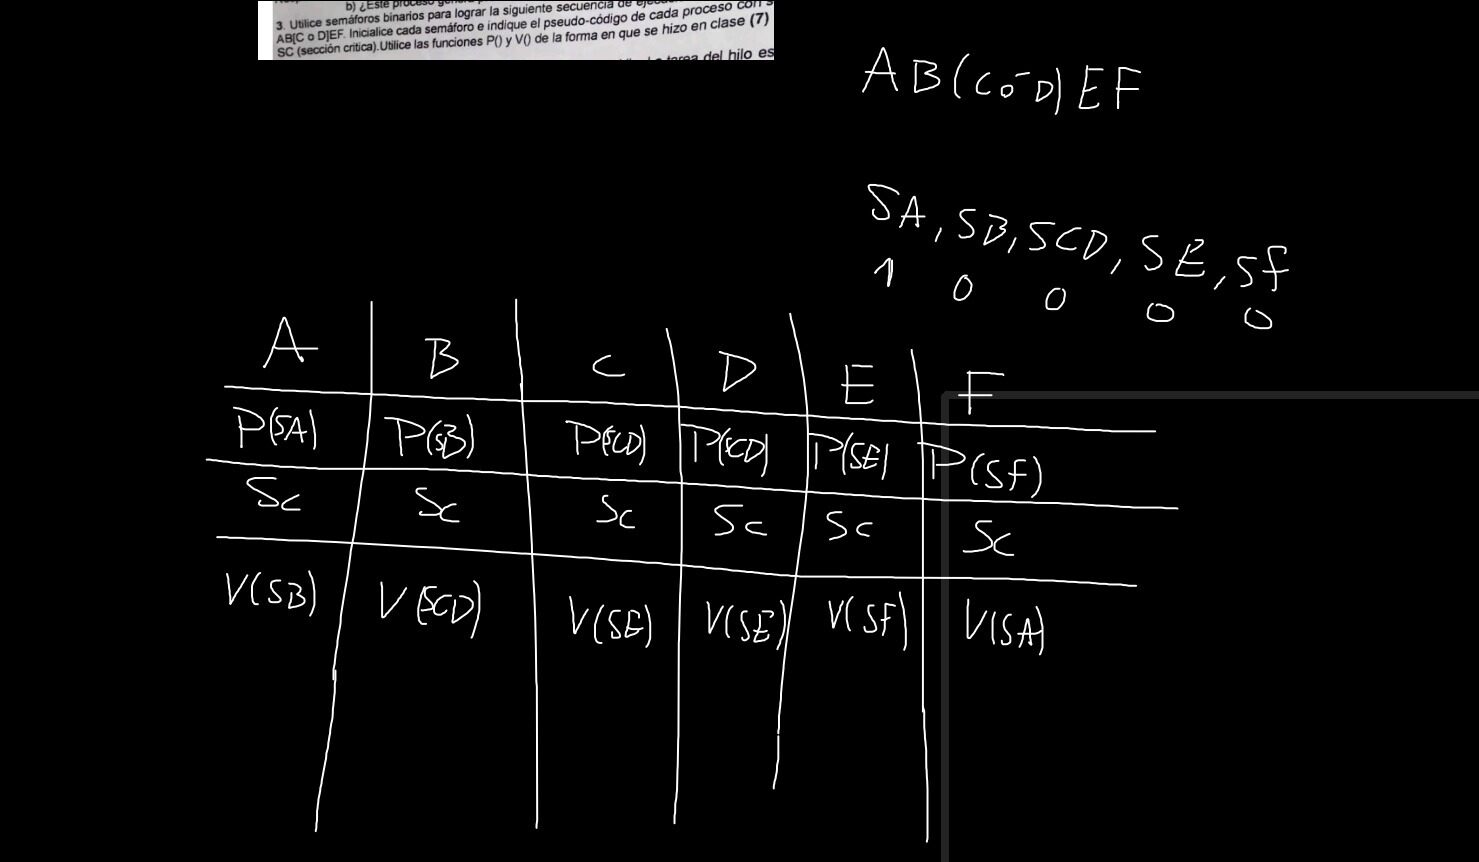 b) ¿Este proceso
3. Utilice semáforos binarios para lograr la siguiente secuencia de
AB[C o D]EF. Inicialice cada semáforo e indique el pseudo-código de cada proceso con
SC (sección critica).Utilice las funciones P() y V() de la forma en que se hizo en clase (7)
tarea del hilo es
AB(CoD)EF
SA, SB, SCD, SE, SF
1 0 0 0 0
A B C D E F
P(SA) P(SB) P(SCD) P(SCD) P(SE) P(SF)
SC SC SC SC SC SC
V(SB) V(SCD) V(SE) V(SE) V(SF) V(SA)